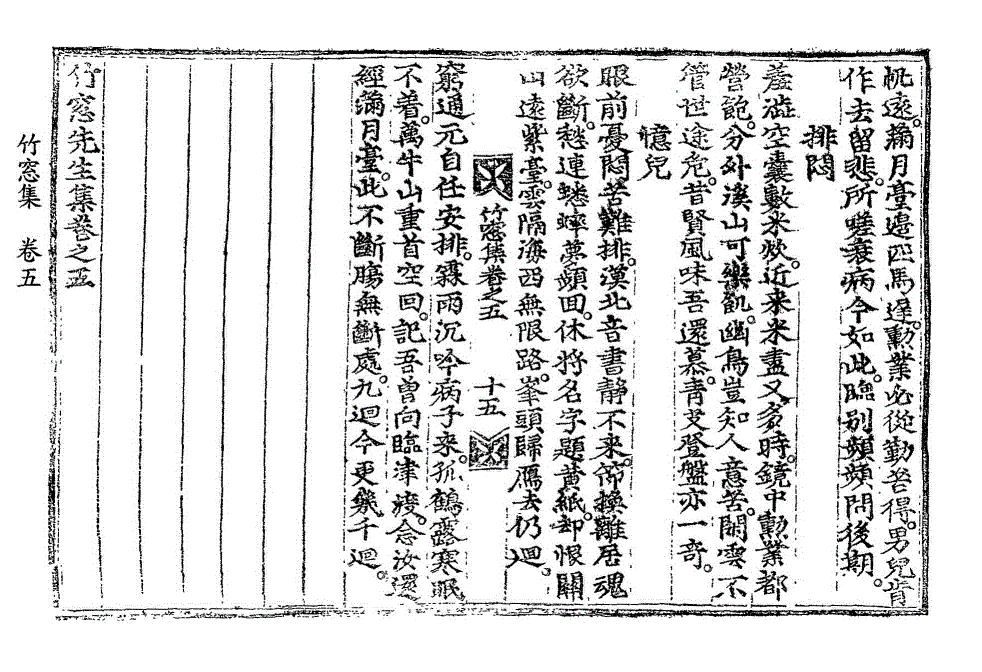 帆遠。滿月臺邊匹馬遲。勳業必從勤苦得。男兒肯
作去留悲。所嗟衰病今如此。臨別頻頻問後期。
排悶
羞澁空囊數米炊。近來米盡又多時。鏡中勳業都
營飽。分外溪山可樂飢。幽鳥豈知人意苦。閑雲不
管世途危。昔賢風味吾還慕。靑芰登盤亦一奇。
憶兒
眼前憂悶苦難排。漠北音書靜不來。節換離居魂
欲斷。愁連蟋蟀夢頻回。休將名字題黃紙。却恨關
山遠紫臺。雲隔海西無限路。峯頭歸鴈去仍迴。
竹窓集卷之五 十五
窮通元自任安排。霖雨沉吟病子來。孤鶴露寒眠
不着。萬牛山重首空回。記吾曾向臨津渡。念汝還
經滿月臺。此不斷膓無斷處。九迴今更幾千迴。
竹窓先生集卷之五
竹窓集 卷五